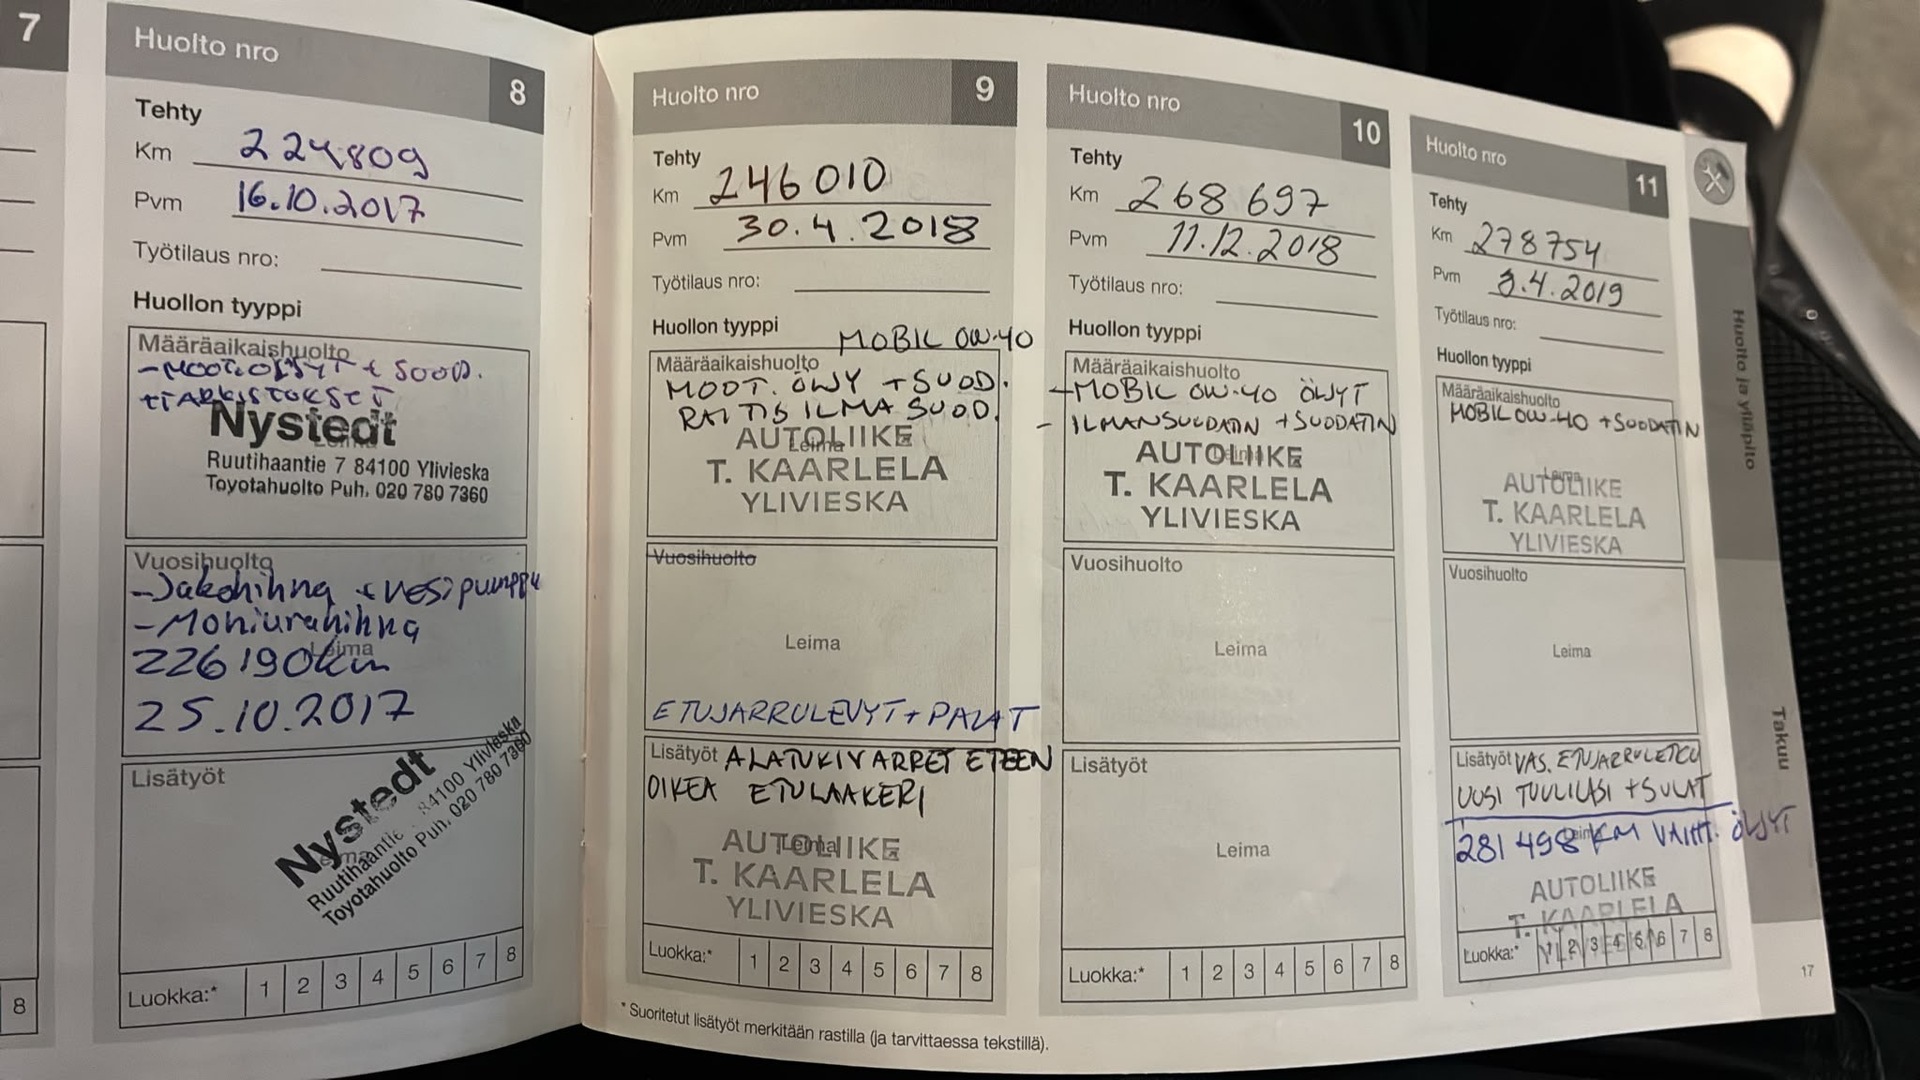 7
Huolto nro
8
Tehty
Km 224809
Pvm 16.10.2017
Työtilaus nro:
Huollon tyyppi
Määräaikaishuolto
-MOOT.ÖLJYT + SUOD.
+TARKISTUKSET
Nystedt
Leima
Ruutihaantie 7 84100 Ylivieska
Toyotahuolto Puh. 020 780 7360
Vuosihuolto
-Jakohihna + vesipumppu
-Moniurahihna
Leima
226190km
25.10.2017
Lisätyöt
Nystedt
Leima
Ruutihaantie 84100 Ylivieska
Toyotahuolto Puh. 020 780 7360
Luokka:* 1 2 3 4 5 6 7 8
8
Huolto nro
9
Tehty
Km 246010
Pvm 30.4.2018
Työtilaus nro:
Huollon tyyppi
MOBIL 0W-40
Määräaikaishuolto
MOOT. ÖLJY +SUOD.
RAITIS ILMA SUOD.
AUTOLIIKE
Leima
T. KAARLELA
YLIVIESKA
Vuosihuolto
Leima
ETUJARRULEVYT+PALAT
Lisätyöt ALATUKIVARRET ETEEN
OIKEA ETULAAKERI
AUTOLIIKE
Leima
T. KAARLELA
YLIVIESKA
Luokka:* 1 2 3 4 5 6 7 8
* Suoritetut lisätyöt merkitään rastilla (ja tarvittaessa tekstillä).
Huolto nro
10
Tehty
Km 268 697
Pvm 11.12.2018
Työtilaus nro:
Huollon tyyppi
Määräaikaishuolto
-MOBIL 0W-40 ÖLJYT
- ILMANSUODATIN +SUODATIN
AUTOLIIKE
Leima
T. KAARLELA
YLIVIESKA
Vuosihuolto
Leima
Lisätyöt
Leima
Luokka:* 1 2 3 4 5 6 7 8
Huolto nro
11
Tehty
Km 278754
Pvm 3.4.2019
Työtilaus nro:
Huollon tyyppi
Määräaikaishuolto
MOBIL 0W-40 +SUODATIN
Leima
AUTOLIIKE
T. KAARLELA
YLIVIESKA
Vuosihuolto
Leima
Lisätyöt VAS. ETUJARRULETKU
UUSI TUULILASI +SULAT
281 498 KM VAIHT. ÖLJYT
Leima
AUTOLIIKE
T. KAARLELA
Luokka:* 1 2 3 4 5 6 7 8
Huolto ja ylläpito
Takuu
17